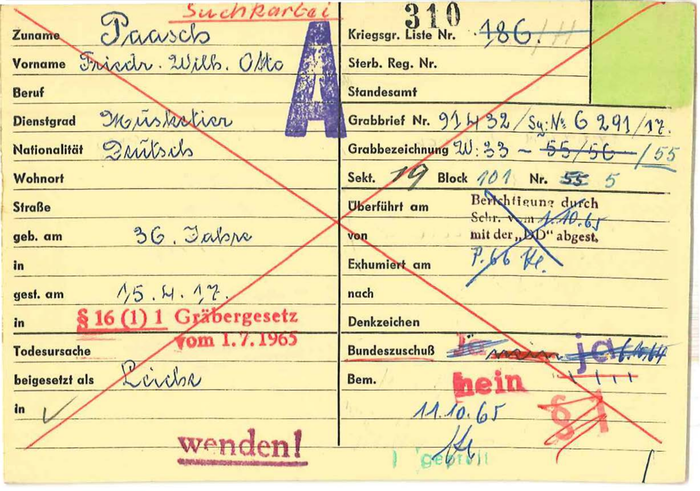 Suchkartei
310
A
Zuname Paasch
Vorname Friedr. Wilh. Otto
Beruf
Dienstgrad Musketier
Nationalität Deutsch
Wohnort
Straße
geb. am 36. Jahre
in
gest. am 15.4.17.
in § 16 (1) 1 Gräbergesetz
vom 1.7.1965
Todesursache
beigesetzt als Leiche
in
wenden!
Kriegsgr. Liste Nr. 186/
Sterb. Reg. Nr.
Standesamt
Grabbrief Nr. 91432/Sq: No 6291/17.
Grabbezeichnung W: 33 - 55/56/55
Sekt. 19 Block 101 Nr. 55 5
Überführt am Berichtigung durch
Schr. vom 1.10.65
von mit der „DD" abgest.
Exhumiert am P.66
nach
Denkzeichen
Bundeszuschuß nein ja 6.10.64
Bem. nein
11.10.65
§ 1
geprüft